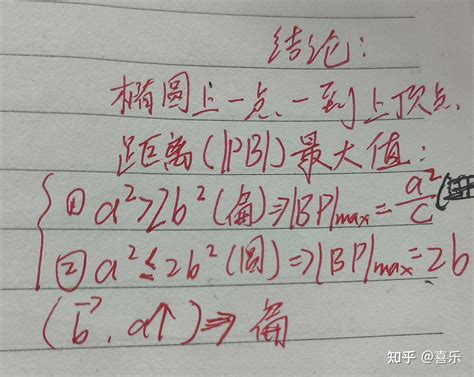 结论：
椭圆上一点一到上顶点
距离(|PB|)最大值：
① a²>2b²(扁)⇒|BP|max=a²/c
② a²≤2b²(圆)⇒|BP|max=2b
(b→, a↑)⇒扁
知乎 @喜乐